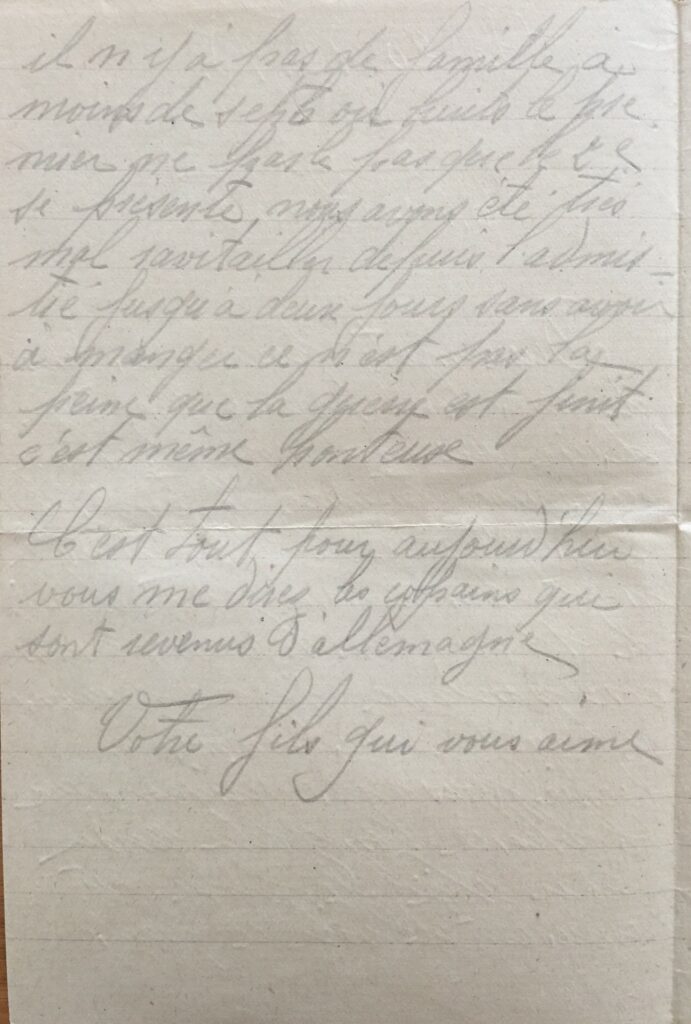 il n'y a pas de famille à
moins de sept ou huits le pre
mier ne parle pas que le 2e
se présente, nous avons été très
mal ravitailler depuis l'admis_
tie jusqu'a deux jours sans avoir
à manger ce n'est pas la
peine que la guerre est finit
c'est même honteuse
C'est tout pour aujourd'hui
vous me direz les copains qui
sont revenus d'allemagne
Votre fils qui vous aime